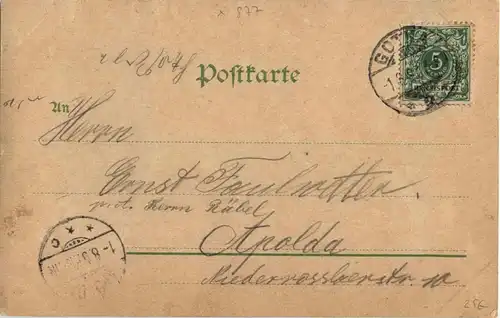 x 877
Postkarte
GOTHA
5
An
Herrn
Ernst Faulwetter
p. A. Herrn Räbel
Apolda
Niederrossberstr. 10
256